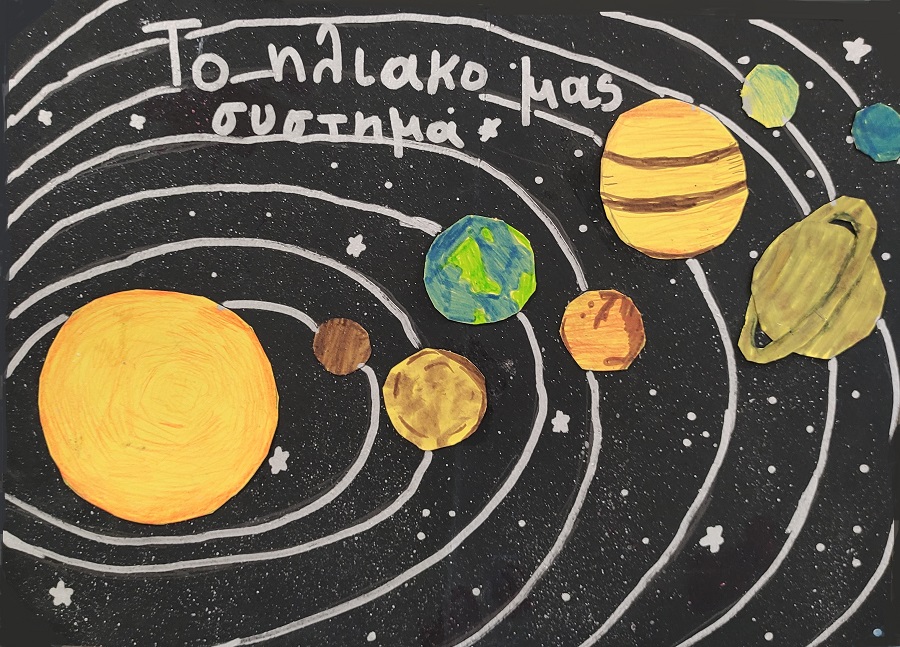 Το ηλιακο μας
συστημα